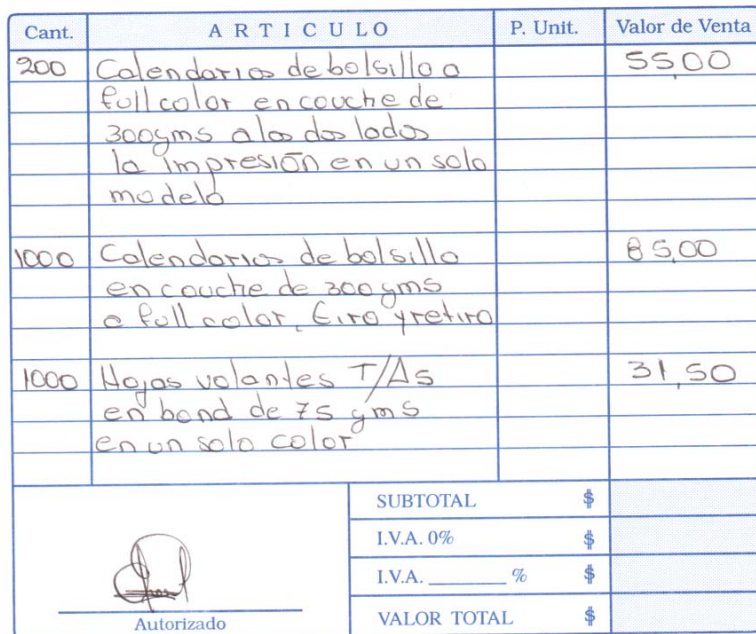 Cant. ARTICULO P. Unit. Valor de Venta
200 Calendarios de bolsillo a 55,00
full color en couche de
300gms a los dos lados
la impresión en un solo
modelo
1000 Calendarios de bolsillo 85,00
en couche de 300 gms
a full color, tiro y retiro
1000 Hojas volantes T/A5 31,50
en bond de 75 gms
en un solo color
SUBTOTAL $
I.V.A. 0% $
I.V.A. ________ % $
Autorizado VALOR TOTAL $